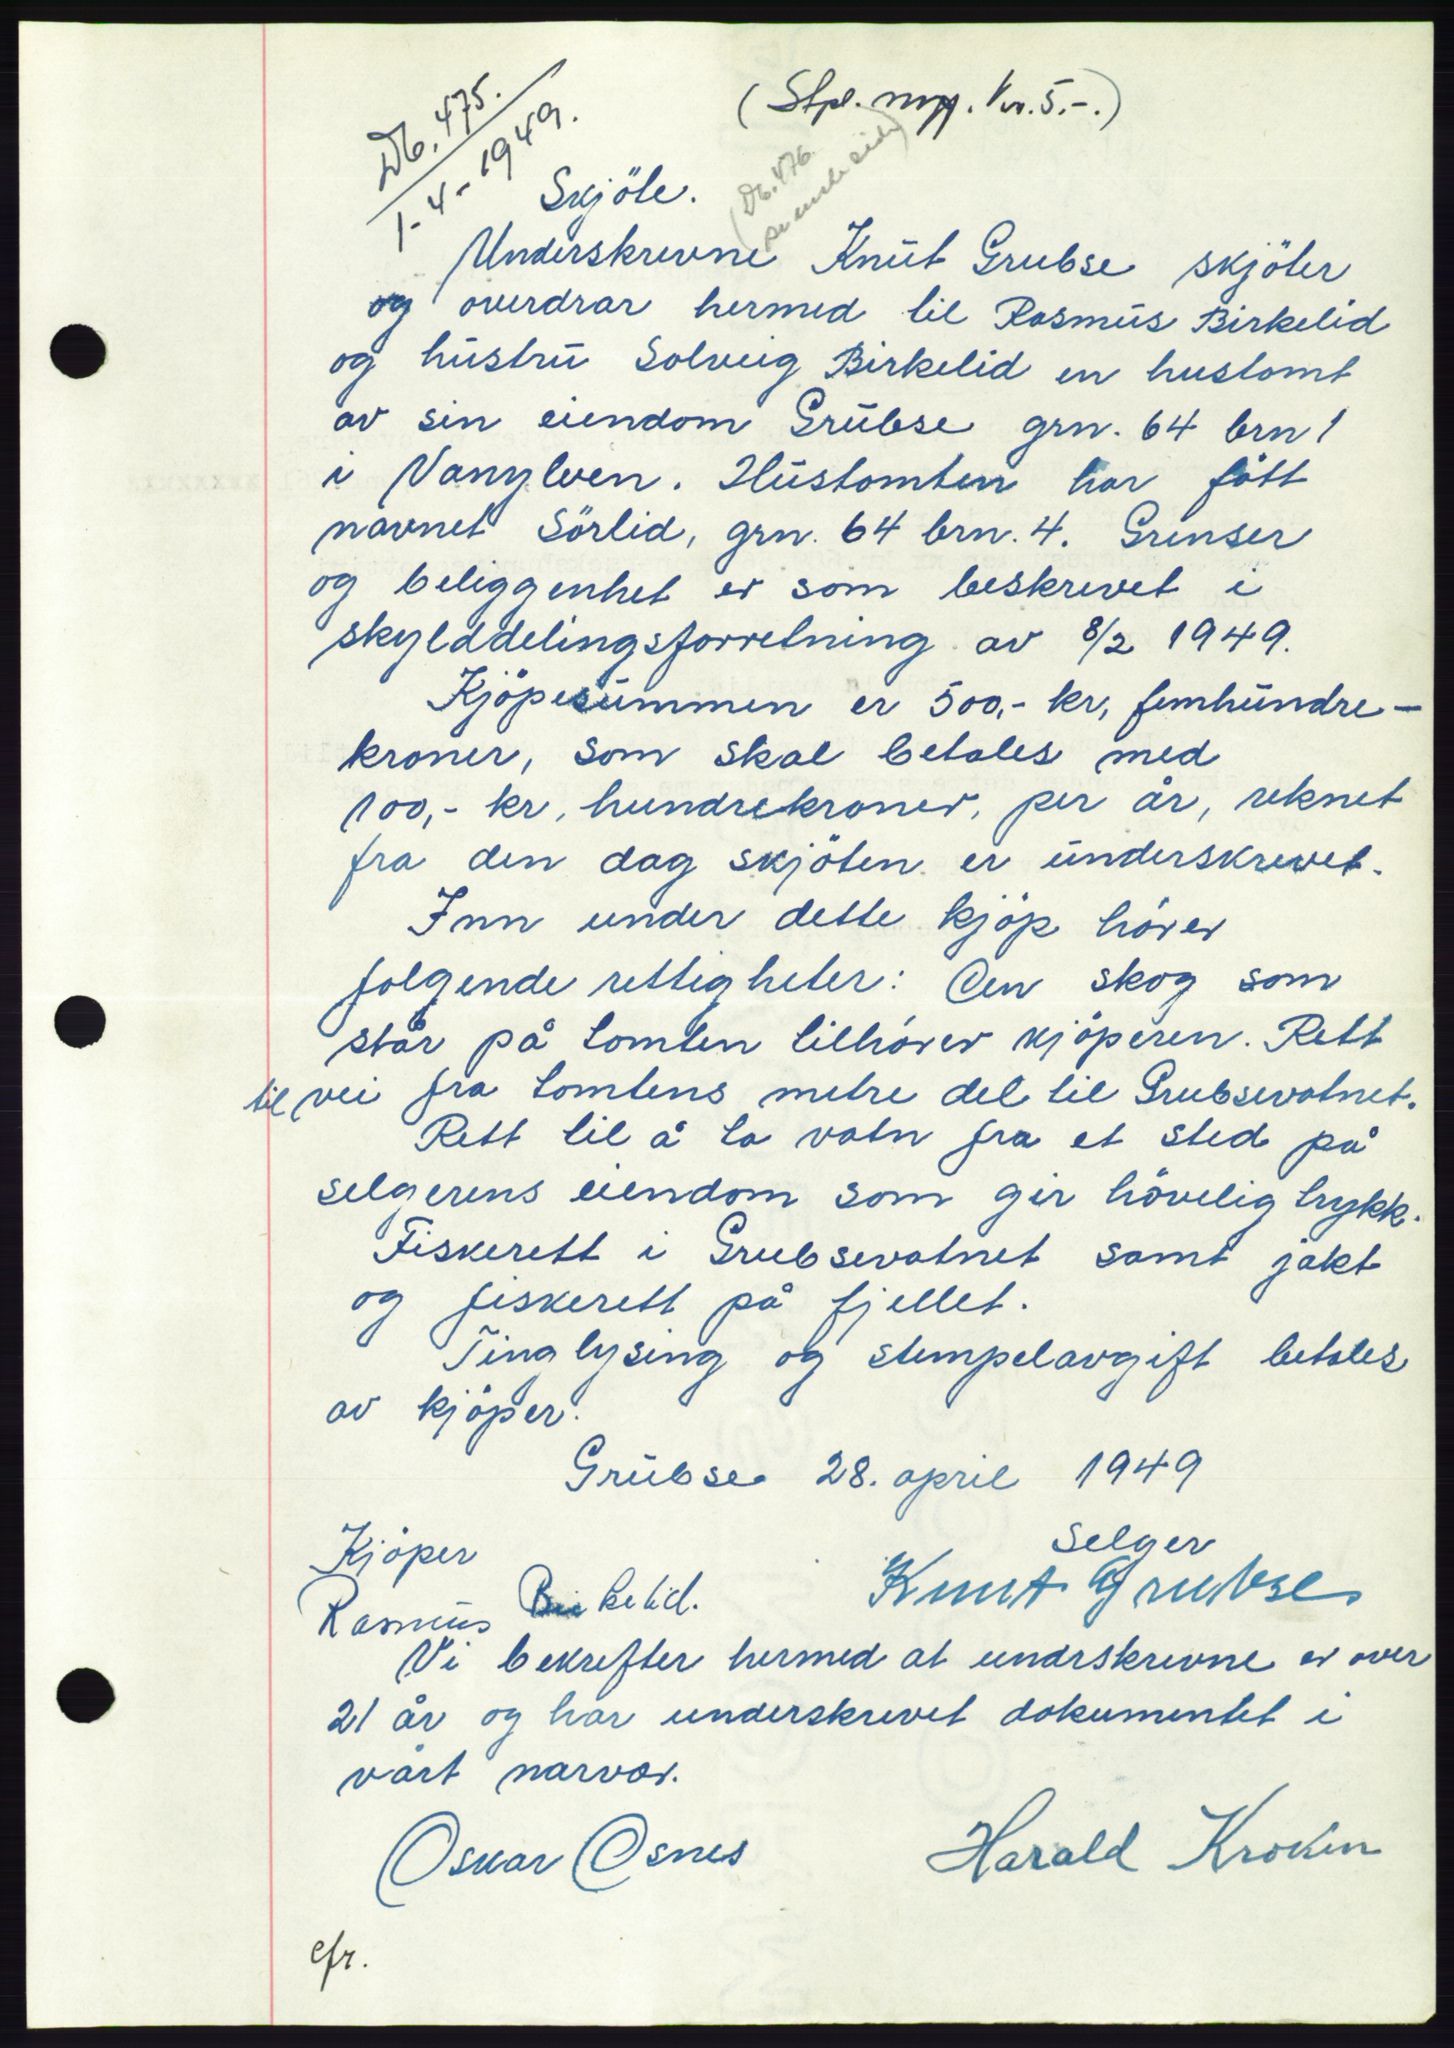 Db. 475.
1-4-1949.
(Stpl. mrg. kr. 5.-.)
(Db. 476
se neste side)
Skjöte.
Underskrevne Knut Grubse skjöter
og overdrar hermed til Rasmus Birkelid
og hustru Solveig Birkelid en hustomt
av sin eiendom Grubse grn. 64 brn 1
i Vanylven. Hustomten har fått
navnet Sörlid, grn. 64 brn. 4. Grenser
og beleggenhet er som beskrevet i
skylddelingsforretning av 8/2 1949.
Kjöpesummen er 500,- kr, femhundre-
kroner, som skal betales med
100,- kr, hundrekroner, per år, reknet
fra den dag skjöten er underskrevet.
Inn under dette kjöp hörer
folgende rettigheter: Den skog som
står på tomten tilhörer kjöperen. Rett
til vei fra tomtens metre del til Grubsevatnet.
Rett til å ta vatn fra et sted på
selgerens eiendom som gir hövelig trykk.
Fiskerett i Grubsevatnet samt jakt
og fiskerett på fjellet.
Tinglysing og stempelavgift betales
av kjöper.
Grubse 28. april 1949
Kjöper
Selger
Rasmus Birkelid.
Knut Grubse
Vi bekrefter hermed at undrskrevne er over
21 år og har underskrevet dokumentet i
vårt narvær.
Oskar Osnes
Harald Kroken
cfr.